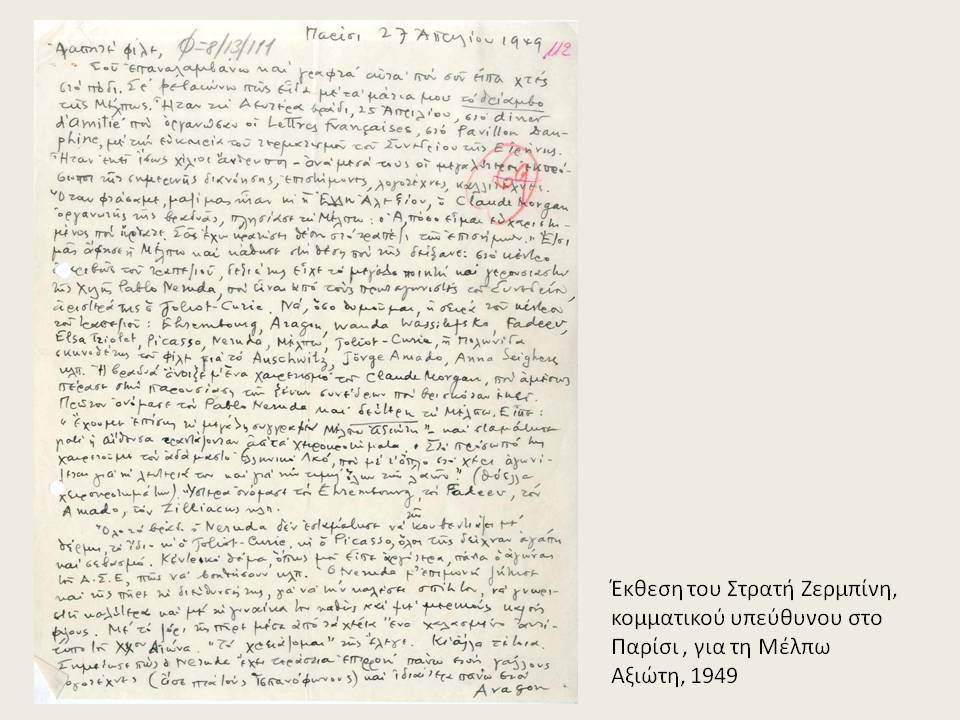 Παρίσι 27 Απριλίου 1949
112
Αγαπητέ φίλε, Φ=8/13/111
Σού επαναλαμβάνω και γραφτά αυτά πού σού είπα χτές
στό πόδι. Σέ βεβαιώνω πώς είδα μέ τά μάτια μου τό θρίαμβο
της Μέλπως. Ήταν τη Δευτέρα βράδι, 25 Απριλίου, στό diner
d'Amitié πού οργάνωσαν οι Lettres Françaises, στό Pavillon Dau-
phine, μέ την ευκαιρία του τερματισμού του Συνεδρίου της Ειρήνης.
Ήταν εκεί ίσως χίλιοι άνθρωποι - ανάμεσά τους οι μεγαλύτεροι εκπρό-
σωποι της σημερινής διανόησης, επιστήμονες, λογοτέχνες, καλλιτέχνες.
Όταν φτάσαμε, μαζί μας ήταν κι η Έλλη Αλεξίου, ο Claude Morgan
οργανωτής της βραδυάς, πλησίασε τη Μέλπω: "Α, πόσο είμαι ευχαριστη-
μένος πού ήρθατε. Σάς έχω κρατήσει θέση στό τραπέζι των επισήμων." Έτσι
μάς άφησε η Μέλπω και κάθησε στη θέση πού της δείξανε: στό κέντρο
ακριβώς του τραπεζιού, δεξιά της είχε τό μεγάλο ποιητή και γερουσιαστή
της Χιλής Pablo Neruda, πού είναι από τούς πρωταγωνιστές του Συνεδρίου,
αριστερά της ο Joliot-Curie. Νά, όσο θυμούμαι, η σειρά του κέντρου
του τραπεζιού: Ehrembourg, Aragon, Wanda Wassilefska, Fadeev,
Elsa Triolet, Picasso, Neruda, Μέλπω, Joliot-Curie, η Πολωνίδα
σκηνοθέτης του φίλμ γιά τό Auschwitz, Jorge Amado, Anna Seighers
κλπ. Η βραδυά άνοιξε μ' ένα χαιρετισμό του Claude Morgan, πού αμέσως
πέρασε στην παρουσίαση των ξένων συνέδρων πού βρισκόταν εκεί.
Πρώτον ονόμασε τόν Pablo Neruda και δεύτερη τη Μέλπω. Είπε:
"Έχουμε επίσης τη μεγάλη συγγραφέα Μέλπω Αξιώτη" - και σταμάτησε
γιατί η αίθουσα τραντάζονταν απ' τά χειροκροτήματα. "Στό πρόσωπό της
χαιρετούμε τόν αδάμαστο Ελληνικό Λαό, πού μέ τ' όπλο στό χέρι αγωνί-
ζεται γιά τη λευτεριά του και γιά την τιμή όλων των λαών." (Θύελλα
χειροκροτημάτων). Ύστερα ονόμασε τόν Ehrembourg, τόν Fadeev, τόν
Amado, τόν Zilliacus κλπ.
Όλο τό βράδι ο Neruda δέν εσταμάτησε νά της κουβεντιάζει μέ
θέρμη, τό ίδιο κι ο Joliot-Curie, κι ο Picasso, όλοι της δείχναν αγάπη
και σεβασμό. Κεντρικό θέμα, όπως μού είπε αργότερα, πάντα ο αγώνας
του Δ.Σ.Ε, πώς νά βοηθήσουν κλπ. Ο Neruda μ' επιμονή ζήτησε
και της πήρε τη διεύθυνσή της, γιά νά την καλέσει σπίτι του, νά γνωρι-
στεί καλύτερα και μέ τη γυναίκα του καθώς και μέ μερικούς καλούς
φίλους. Μέ τό ζόρι της πήρε μέσα από τά χέρια ένα χαλασμένο αντί-
τυπο του Αιώνα. "Τό χρειάζομαι" της έλεγε. Κι άλλα τέτοια.
Σημείωσε πώς ο Neruda έχει τεράστια επιρροή πάνω στούς γάλλους
λογοτέχνες (άσε πιά τούς Ισπανόφωνους) και ιδιαίτερα πάνω στόν
Aragon
Έκθεση του Στρατή Ζερμπίνη,
κομματικού υπεύθυνου στο
Παρίσι , για τη Μέλπω
Αξιώτη, 1949